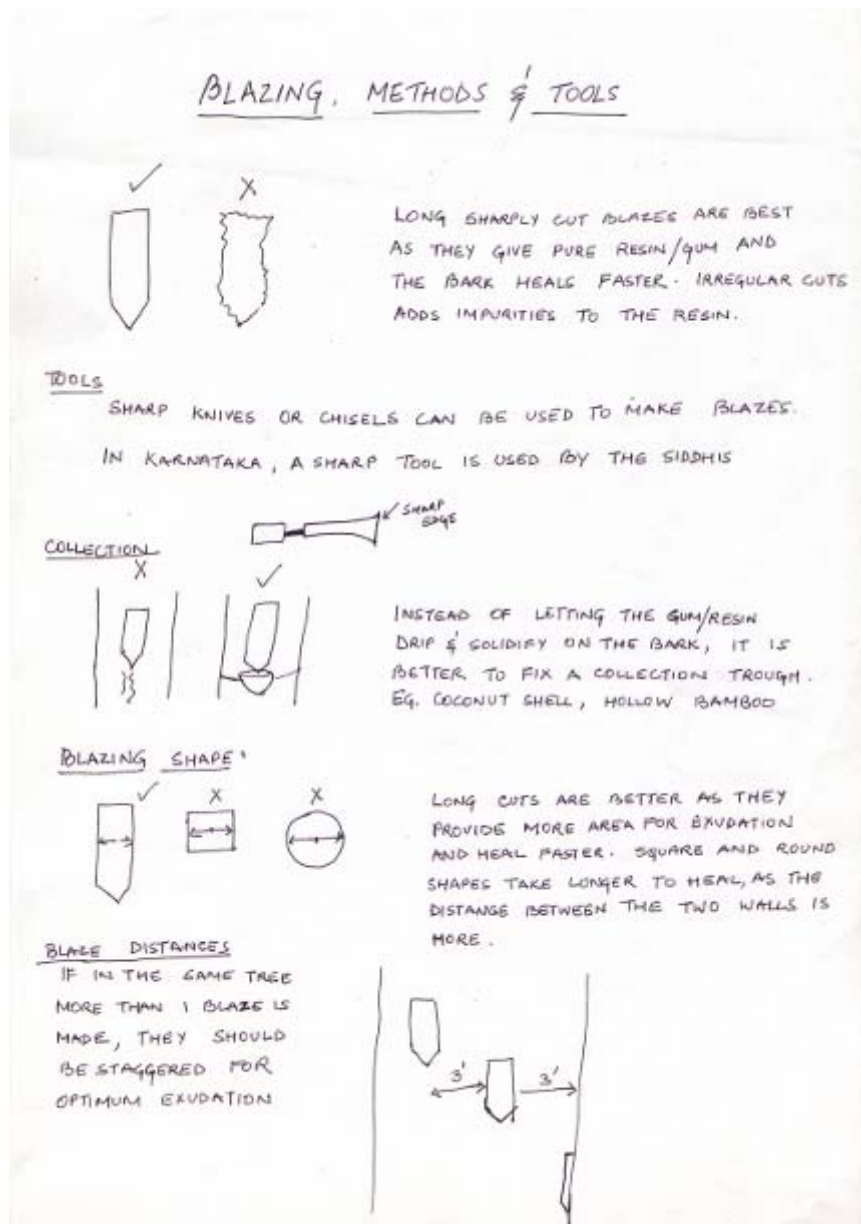 BLAZING, METHODS & TOOLS
✓ X
LONG SHARPLY CUT BLAZES ARE BEST
AS THEY GIVE PURE RESIN/GUM AND
THE BARK HEALS FASTER. IRREGULAR CUTS
ADDS IMPURITIES TO THE RESIN.
TOOLS
SHARP KNIVES OR CHISELS CAN BE USED TO MAKE BLAZES.
IN KARNATAKA, A SHARP TOOL IS USED BY THE SIDDHIS
SHARP
EDGE
COLLECTION
X ✓
INSTEAD OF LETTING THE GUM/RESIN
DRIP & SOLIDIFY ON THE BARK, IT IS
BETTER TO FIX A COLLECTION TROUGH.
EG. COCONUT SHELL, HOLLOW BAMBOO
BLAZING SHAPE:
✓ X X
LONG CUTS ARE BETTER AS THEY
PROVIDE MORE AREA FOR EXUDATION
AND HEAL FASTER. SQUARE AND ROUND
SHAPES TAKE LONGER TO HEAL, AS THE
DISTANCE BETWEEN THE TWO WALLS IS
MORE.
BLAZE DISTANCES
IF IN THE SAME TREE
MORE THAN 1 BLAZE IS
MADE, THEY SHOULD
BE STAGGERED FOR
OPTIMUM EXUDATION
3' 3'